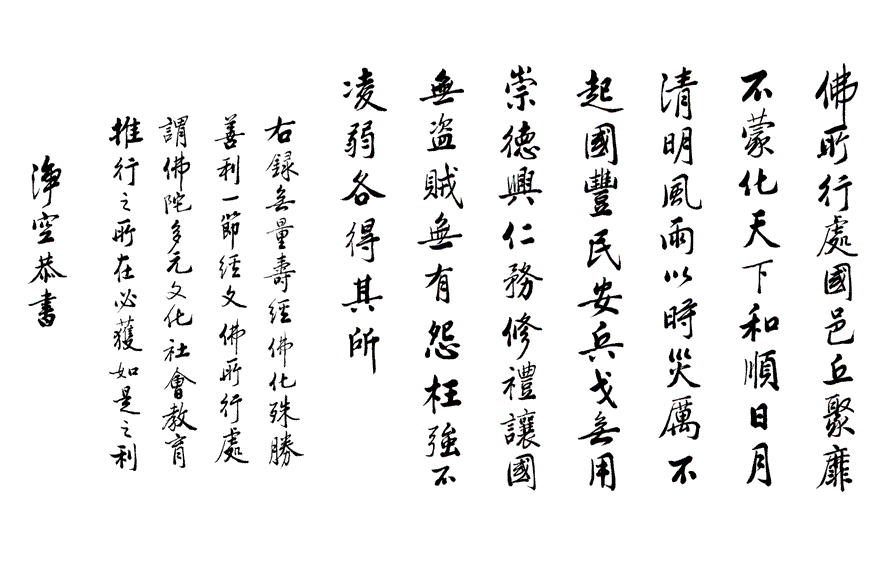 佛所行處國邑丘聚靡
不蒙化天下和順日月
清明風雨以時災厲不
起國豐民安兵戈無用
崇德興仁務修禮讓國
無盜賊無有怨枉強不
凌弱各得其所
右録無量壽經佛化殊勝
善利一節經文佛所行處
謂佛陀多元文化社會教育
推行之所在必獲如是之利
淨空恭書